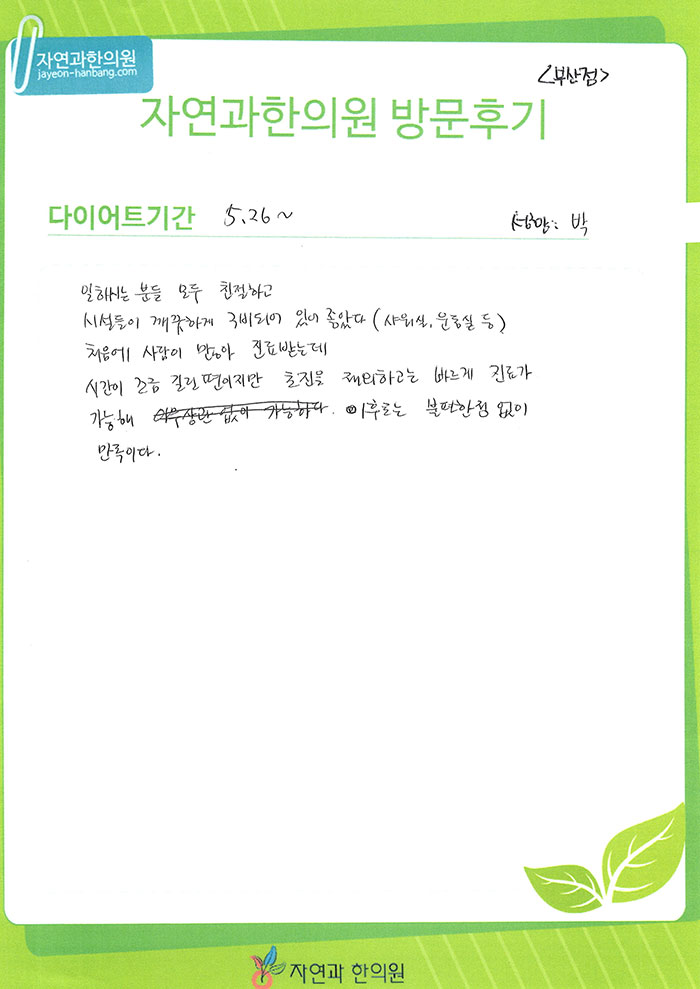 자연과한의원
jayeon-hanbang.com
<부산점>
자연과한의원 방문후기
다이어트기간 5.26~ 성함: 박
일하시는 분들 모두 친절하고
시설들이 깨끗하게 구비되어 있어 좋았다 (샤워실, 운동실 등)
처음에 사람이 많아 진료받는데
시간이 조금 걸린 편이지만 초진을 제외하고는 빠르게 진료가
가능해 상관 없이 가능하다. 이후로는 불편한점 없이
만족이다.
자연과 한의원